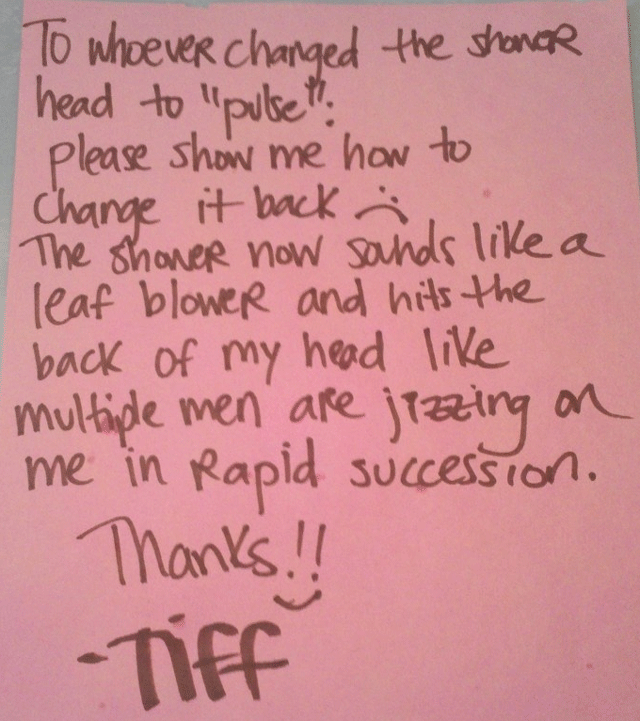 To whoever changed the shower
head to "pulse":
please show me how to
change it back :(
The shower now sounds like a
leaf blower and hits the
back of my head like
multiple men are jizzing on
me in rapid succession.
Thanks!! :)
-Tiff